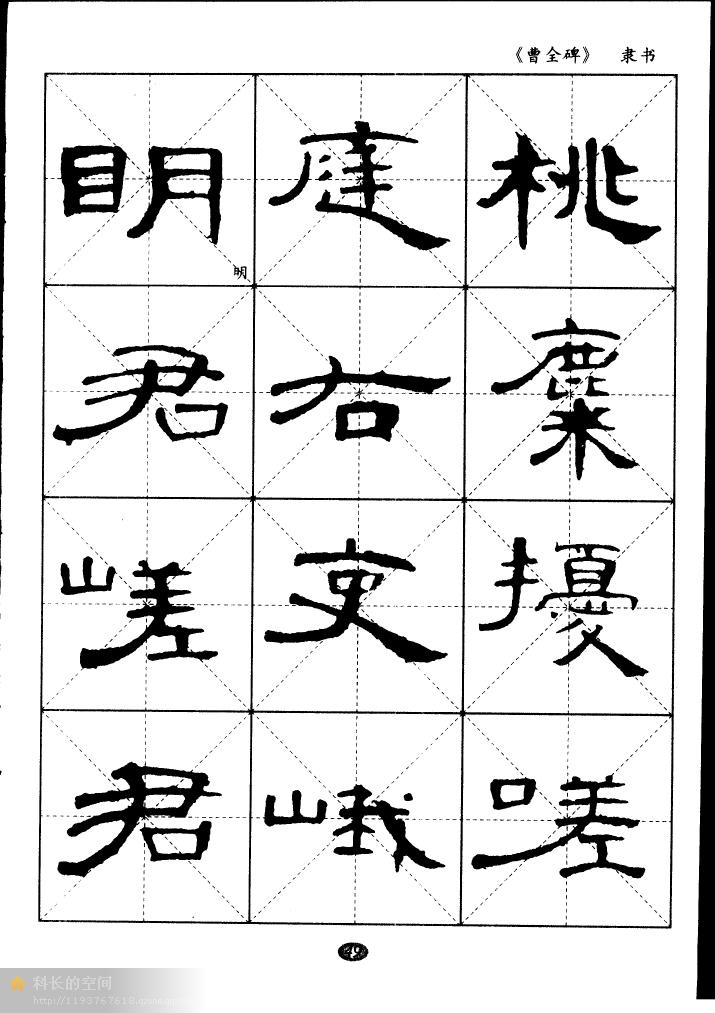 《曹全碑》 隶书
桃麋擾嗟
庭右吏峨
明君嵯君
明
49
科长的空间
http://1193767618.qzone.qq.com